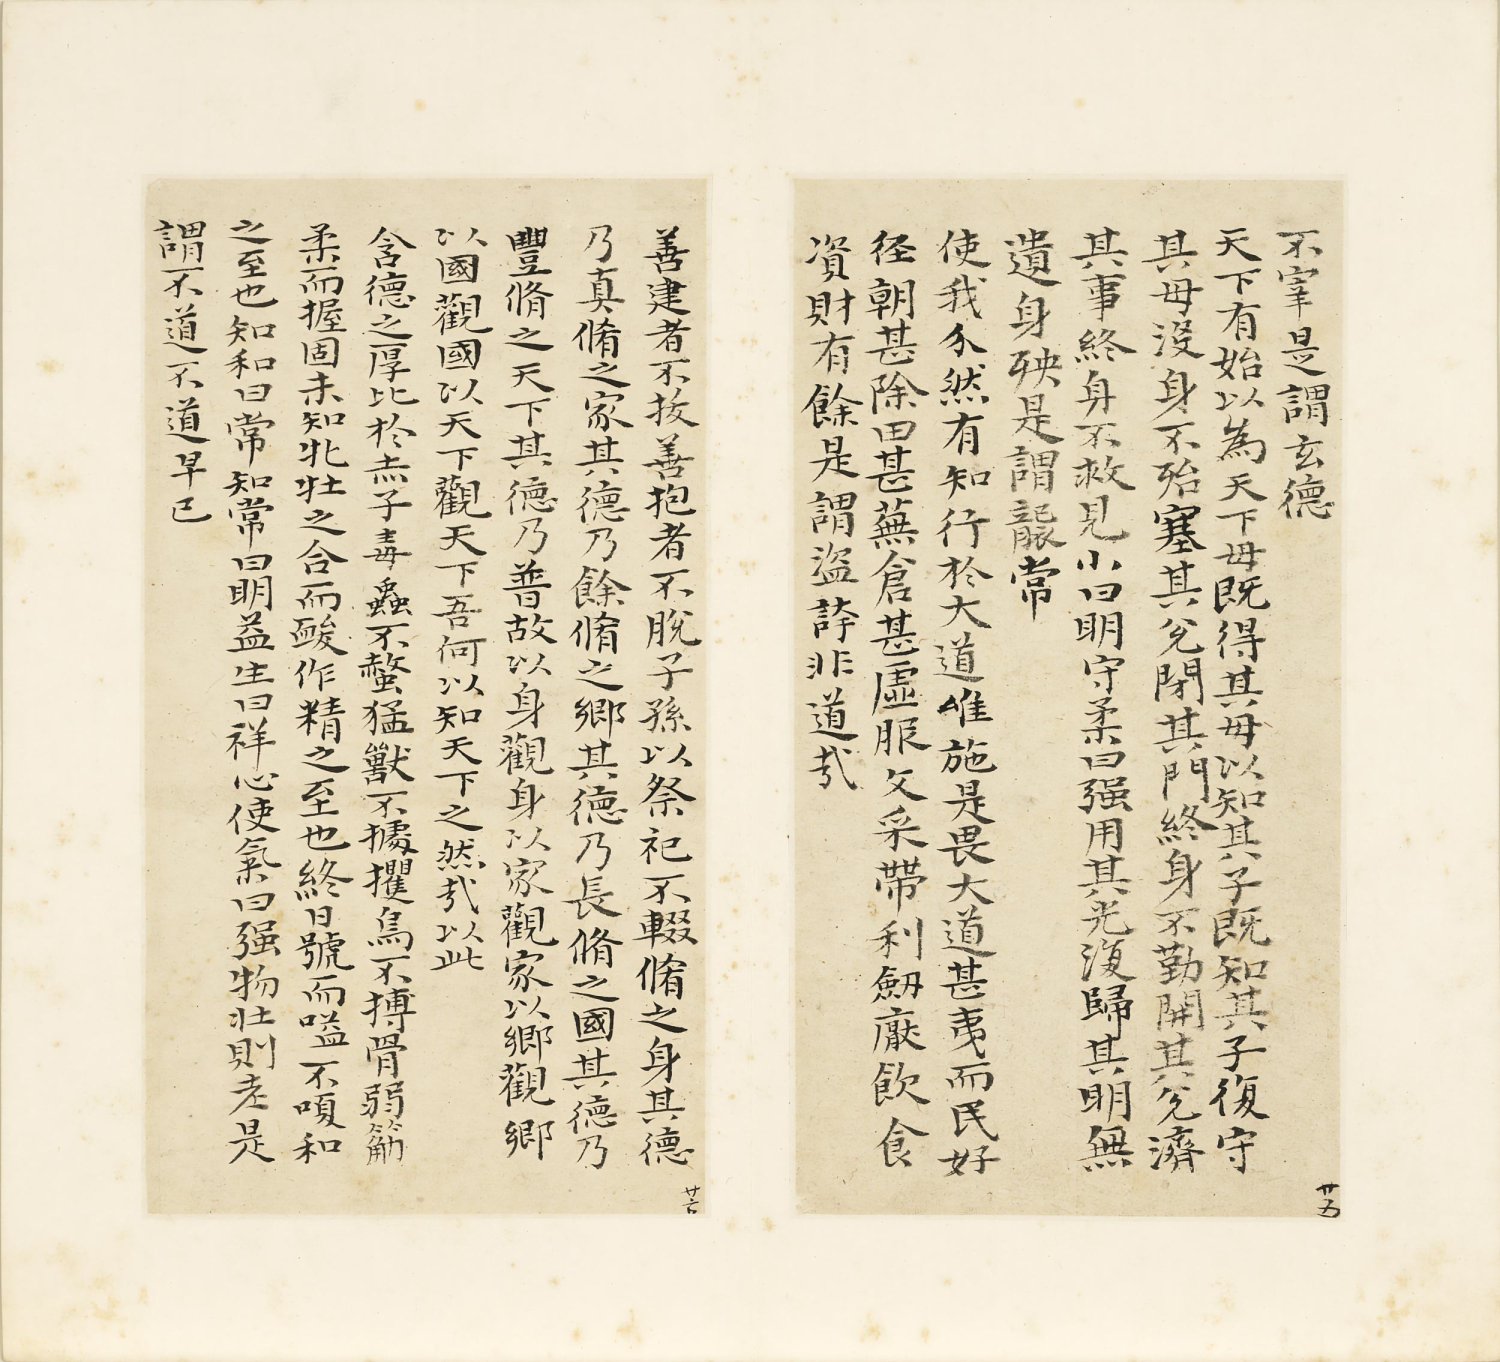 不宰是謂玄德
天下有始以為天下母既得其母以知其子既知其子復守
其母沒身不殆塞其兊閉其門終身不勤開其兊濟
其事終身不救見小曰明守柔曰强用其光復歸其明無
遺身殃是謂襲常
使我介然有知行於大道唯施是畏大道甚夷而民好
径朝甚除田甚蕪倉甚虛服文采帶利劒厭飲食
資財有餘是謂盜誇非道㢤
廿五
善建者不拔善抱者不脫子孫以祭祀不輟脩之身其德
乃真脩之家其德乃餘脩之鄉其德乃長脩之國其德乃
豐脩之天下其德乃普故以身觀身以家觀家以鄉觀鄉
以國觀國以天下觀天下吾何以知天下之然㢤以此
含德之厚比於赤子毒蟲不螫猛獸不據攫鳥不搏骨弱筋
柔而握固未知牝牡之合而酸作精之至也終日號而嗌不嗄和
之至也知和曰常知常曰明益生曰祥心使氣曰强物壯則老是
謂不道不道早已
廿六